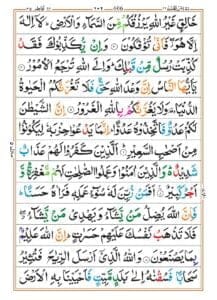 خَالِقٍ غَيْرُ اللّٰهِ يَرْزُقُكُمْ مِّنَ السَّمَآءِ وَالْاَرْضِ ؕ لَاۤ اِلٰهَ
اِلَّا هُوَ ۖ فَاَنّٰى تُؤْفَكُوْنَ ۝ وَاِنْ يُّكَذِّبُوْكَ فَقَدْ
كُذِّبَتْ رُسُلٌ مِّنْ قَبْلِكَ ؕ وَاِلَى اللّٰهِ تُرْجَعُ الْاُمُوْرُ ۝
يٰۤاَيُّهَا النَّاسُ اِنَّ وَعْدَ اللّٰهِ حَقٌّ فَلَا تَغُرَّنَّكُمُ الْحَيٰوةُ
الدُّنْيَا ۥ وَلَا يَغُرَّنَّكُمْ بِاللّٰهِ الْغَرُوْرُ ۝ اِنَّ الشَّيْطٰنَ لَكُمْ
عَدُوٌّ فَاتَّخِذُوْهُ عَدُوًّا ؕ اِنَّمَا يَدْعُوْا حِزْبَهٗ لِيَكُوْنُوْا
مِنْ اَصْحٰبِ السَّعِيْرِ ۝ اَلَّذِيْنَ كَفَرُوْا لَهُمْ عَذَابٌ
شَدِيْدٌ ۬ؕ وَالَّذِيْنَ اٰمَنُوْا وَعَمِلُوا الصّٰلِحٰتِ لَهُمْ مَّغْفِرَةٌ وَّ
اَجْرٌ كَبِيْرٌ ۝ اَفَمَنْ زُيِّنَ لَهٗ سُوْٓءُ عَمَلِهٖ فَرَاٰهُ حَسَنًا ؕ
فَاِنَّ اللّٰهَ يُضِلُّ مَنْ يَّشَآءُ وَيَهْدِيْ مَنْ يَّشَآءُ ۖ
فَلَا تَذْهَبْ نَفْسُكَ عَلَيْهِمْ حَسَرٰتٍ ؕ اِنَّ اللّٰهَ عَلِيْمٌۢ
بِمَا يَصْنَعُوْنَ ۝ وَاللّٰهُ الَّذِيْۤ اَرْسَلَ الرِّيٰحَ فَتُثِيْرُ
سَحَابًا فَسُقْنٰهُ اِلٰى بَلَدٍ مَّيِّتٍ فَاَحْيَيْنَا بِهِ الْاَرْضَ